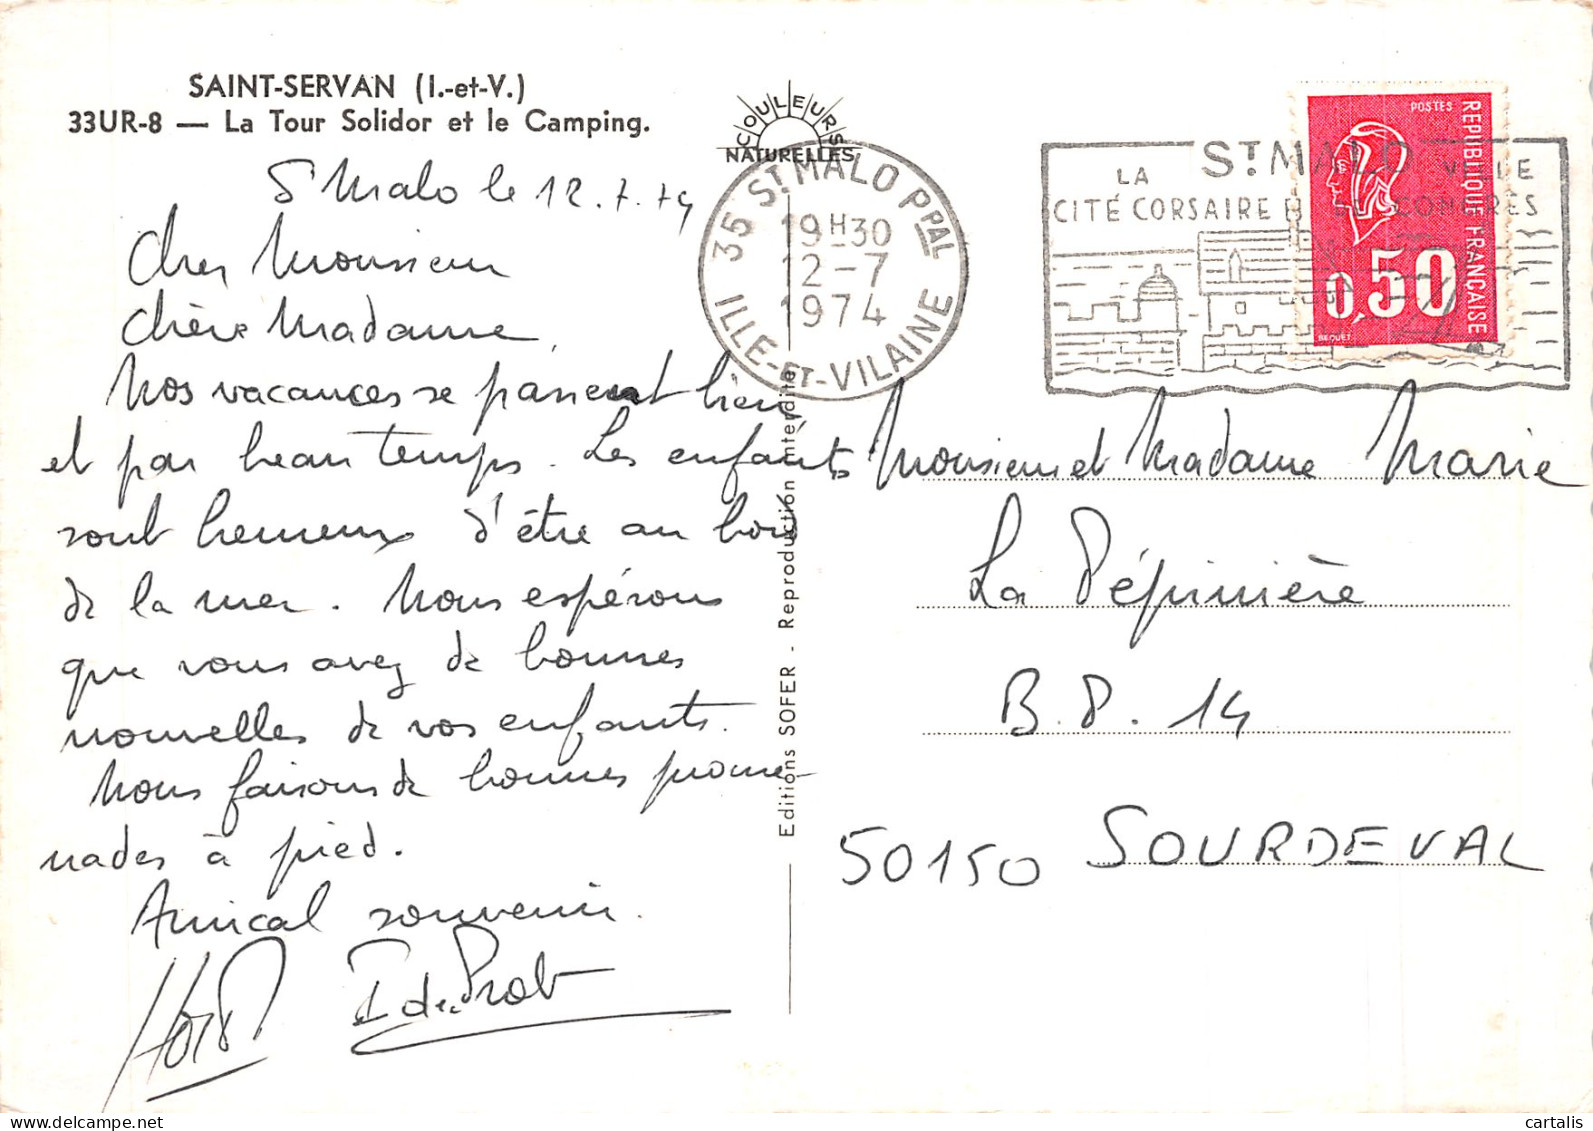 SAINT-SERVAN (I.-et-V.)
33UR-8 — La Tour Solidor et le Camping.
COULEURS
NATURELLES
St Malo le 12.7.74
Cher Monsieur
Chère Madame,
Nos vacances se passent bien
et par beau temps. Les enfants
sont heureux d'être au bord
de la mer. Nous espérons
que vous avez de bonnes
nouvelles de vos enfants.
Nous faisons de bonnes prome-
nades à pied.
Amical souvenir.
Editions SOFER - Reproduction interdite
35 ST. MALO PPAL
19H30
12-7
1974
ILLE-ET-VILAINE
ST. MALO
LA
CITÉ CORSAIRE
POSTES
REPUBLIQUE FRANÇAISE
0,50
BEQUET
Monsieur et Madame Marie
La Pépinière
B.P. 14
50150 SOURDEVAL
cartalis